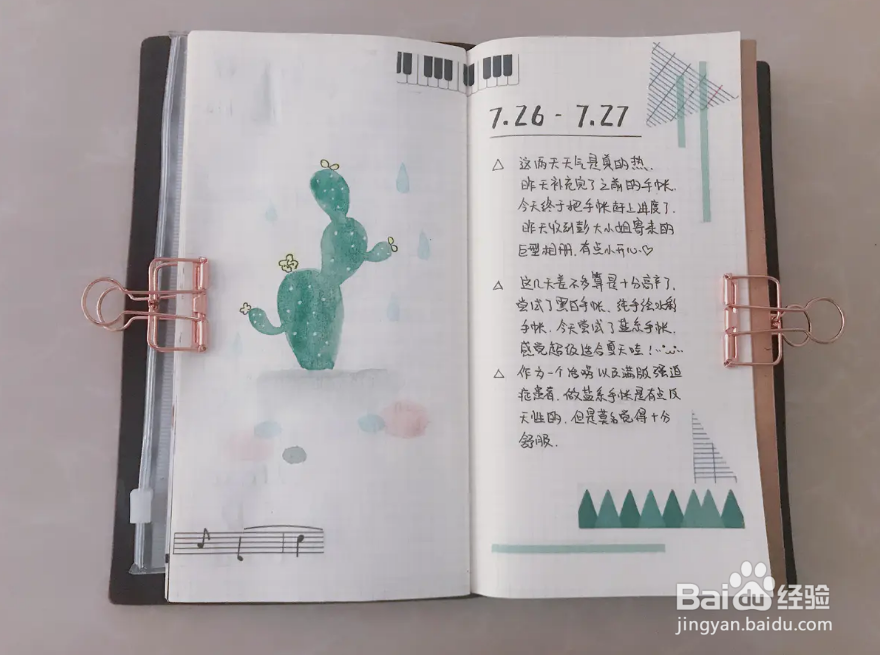 7.26 - 7.27
△ 这两天天气是真的热.
昨天补充完了之前的手帐.
今天终于把手帐赶上进度了.
昨天收到彭大小姐寄来的
巨型相册.有点小开心♡
△ 这几天差不多算是十分高产了.
尝试了蛋白手帐.纯手绘水彩
手帐.今天尝试了盐系手帐.
感觉超级适合夏天哇!
△ 作为一个 以及满版强迫
症患者.做盐系手帐是有点反
天性的.但是莫名觉得十分
舒服.
Baidu 经验
jingyan.baidu.com